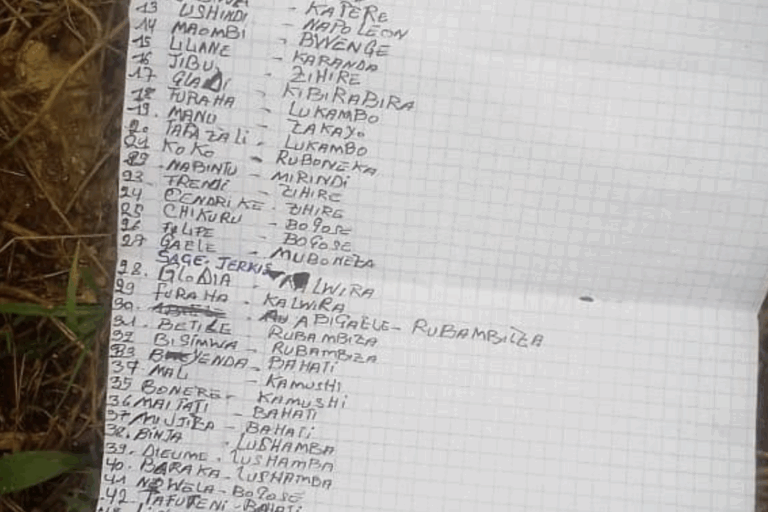 13 LUSHINDI - KATERE
14 MAOMBI - NAPOLEON
15 LILIANE - BWENGE
16 JIBU - KARANDA
17 GLADI - ZIHIRE
18 FURAHA - KIBIRABIRA
19. MANU - LUKAMBO
20 TABAZALI - ZAKAYO
21 KOKO - LUKAMBO
22 NABINTU - RUBONEKA
23 TRENDI - MIRINDI
24 CENDRIKE - ZIHIRE
25 CHIKURU - ZIHIRE
26 FELIPE - BOGOSE
27 GAELE - BOGOSE
SAGE-JERKIS - MUBONEZA
28. GLODIA - KALWIRA
29 FURAHA - KALWIRA
30. ABIGAELE - RUBAMBIZA
31. BETILE - RUBAMBIZA
32 BISIMWA - RUBAMBIZA
33 BYENDA - BAHATI
34 MALI - KAMUSHI
35 BONERE - KAMUSHI
36 MAITATI - BAHATI
37 MUJIBA - BAHATI
38. BINJA - LUSHAMBA
39. DIEUME - LUSHAMBA
40. BARAKA - LUSHAMBA
41 NEWELA - BOGOSE
42 TAFUTENI - BAHATI